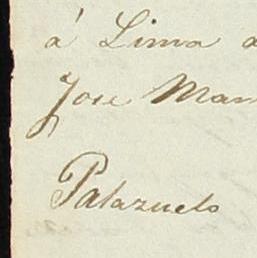 á Lima a
Jose Man
Palazuelo